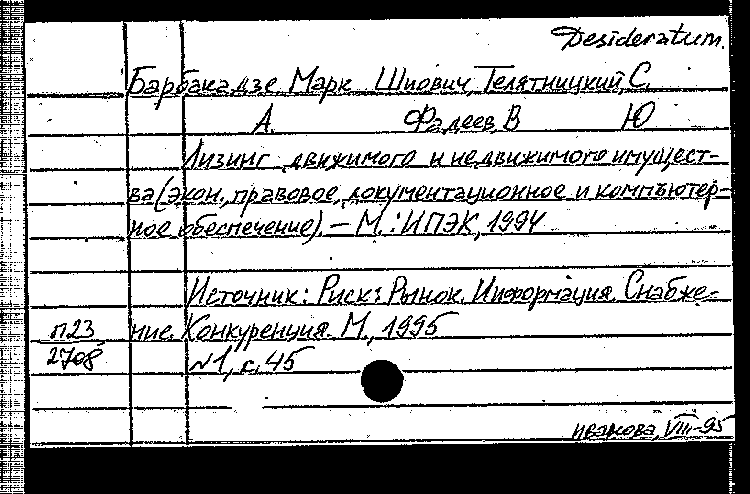 Desideratum.
Барбакадзе Марк Шиович, Телятницкий, С.
А. Фадеев, В Ю
Лизинг движимого и недвижимого имущест-
ва (экон., правовое, документационное и компьютер-
ное обеспечение) – М.: ИПЭК, 1994
Источник: Риск: Рынок. Информация. Снабже-
п23 ние. Конкуренция. М., 1995
2708 №1, с. 45
иванова, VIII-95